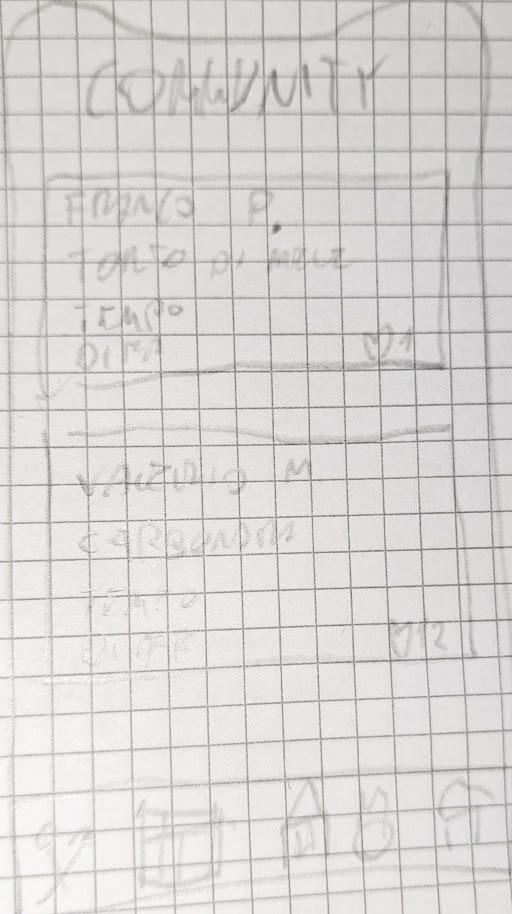 COMMUNITY
FRANCO P.
TORTA DI MELE
TEMPO
DIFF
♡1
VALERIO M
CARBONARA
TEMPO
DIFF
♡12